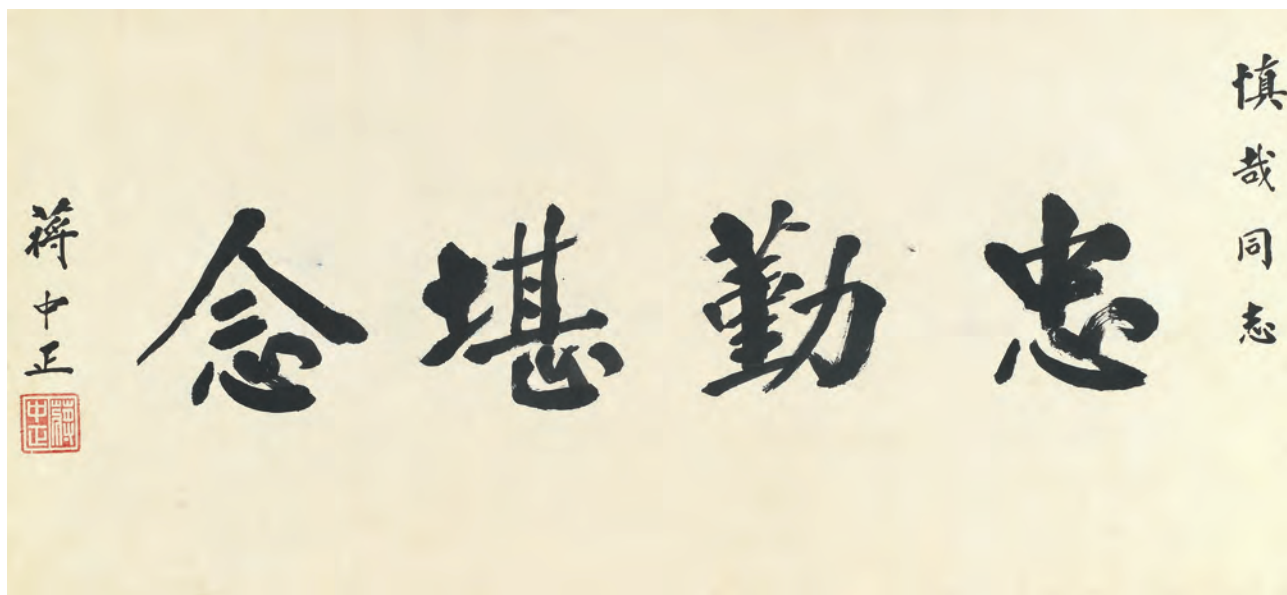 慎哉同志
忠勤堪念
蔣中正
蔣中正